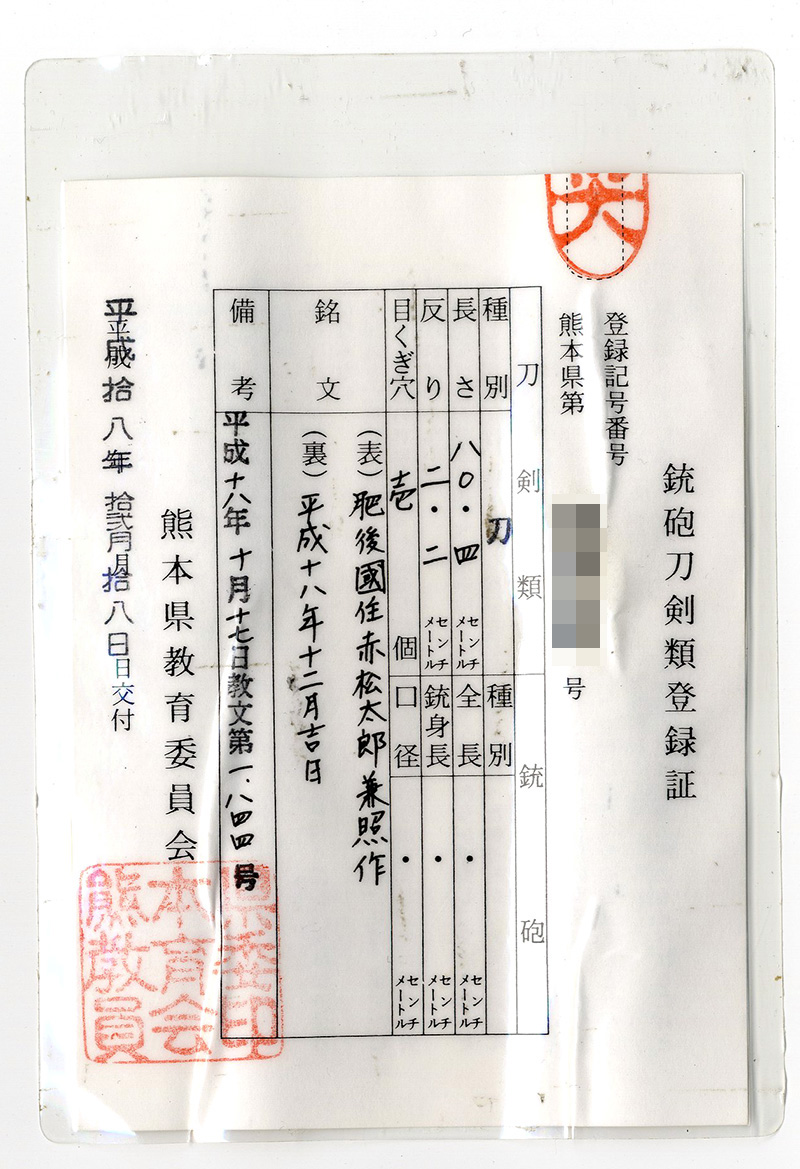 銃砲刀剣類登録証
登録記号番号
熊本県第
号
刀剣類
銃砲
種別
刀
種別
長さ
八〇・四
センチメートル
全長
・
センチメートル
反り
二・二
センチメートル
銃身長
・
センチメートル
目くぎ穴
壱
個
口径
・
センチメートル
銘文
(表)肥後國住赤松太郎兼照作
(裏)平成十八年十二月吉日
備考
平成十八年十月十七日教文第一、八四四号
熊本県教育委員会
平成拾八年拾弐月拾八日交付
熊本県教育委員会印